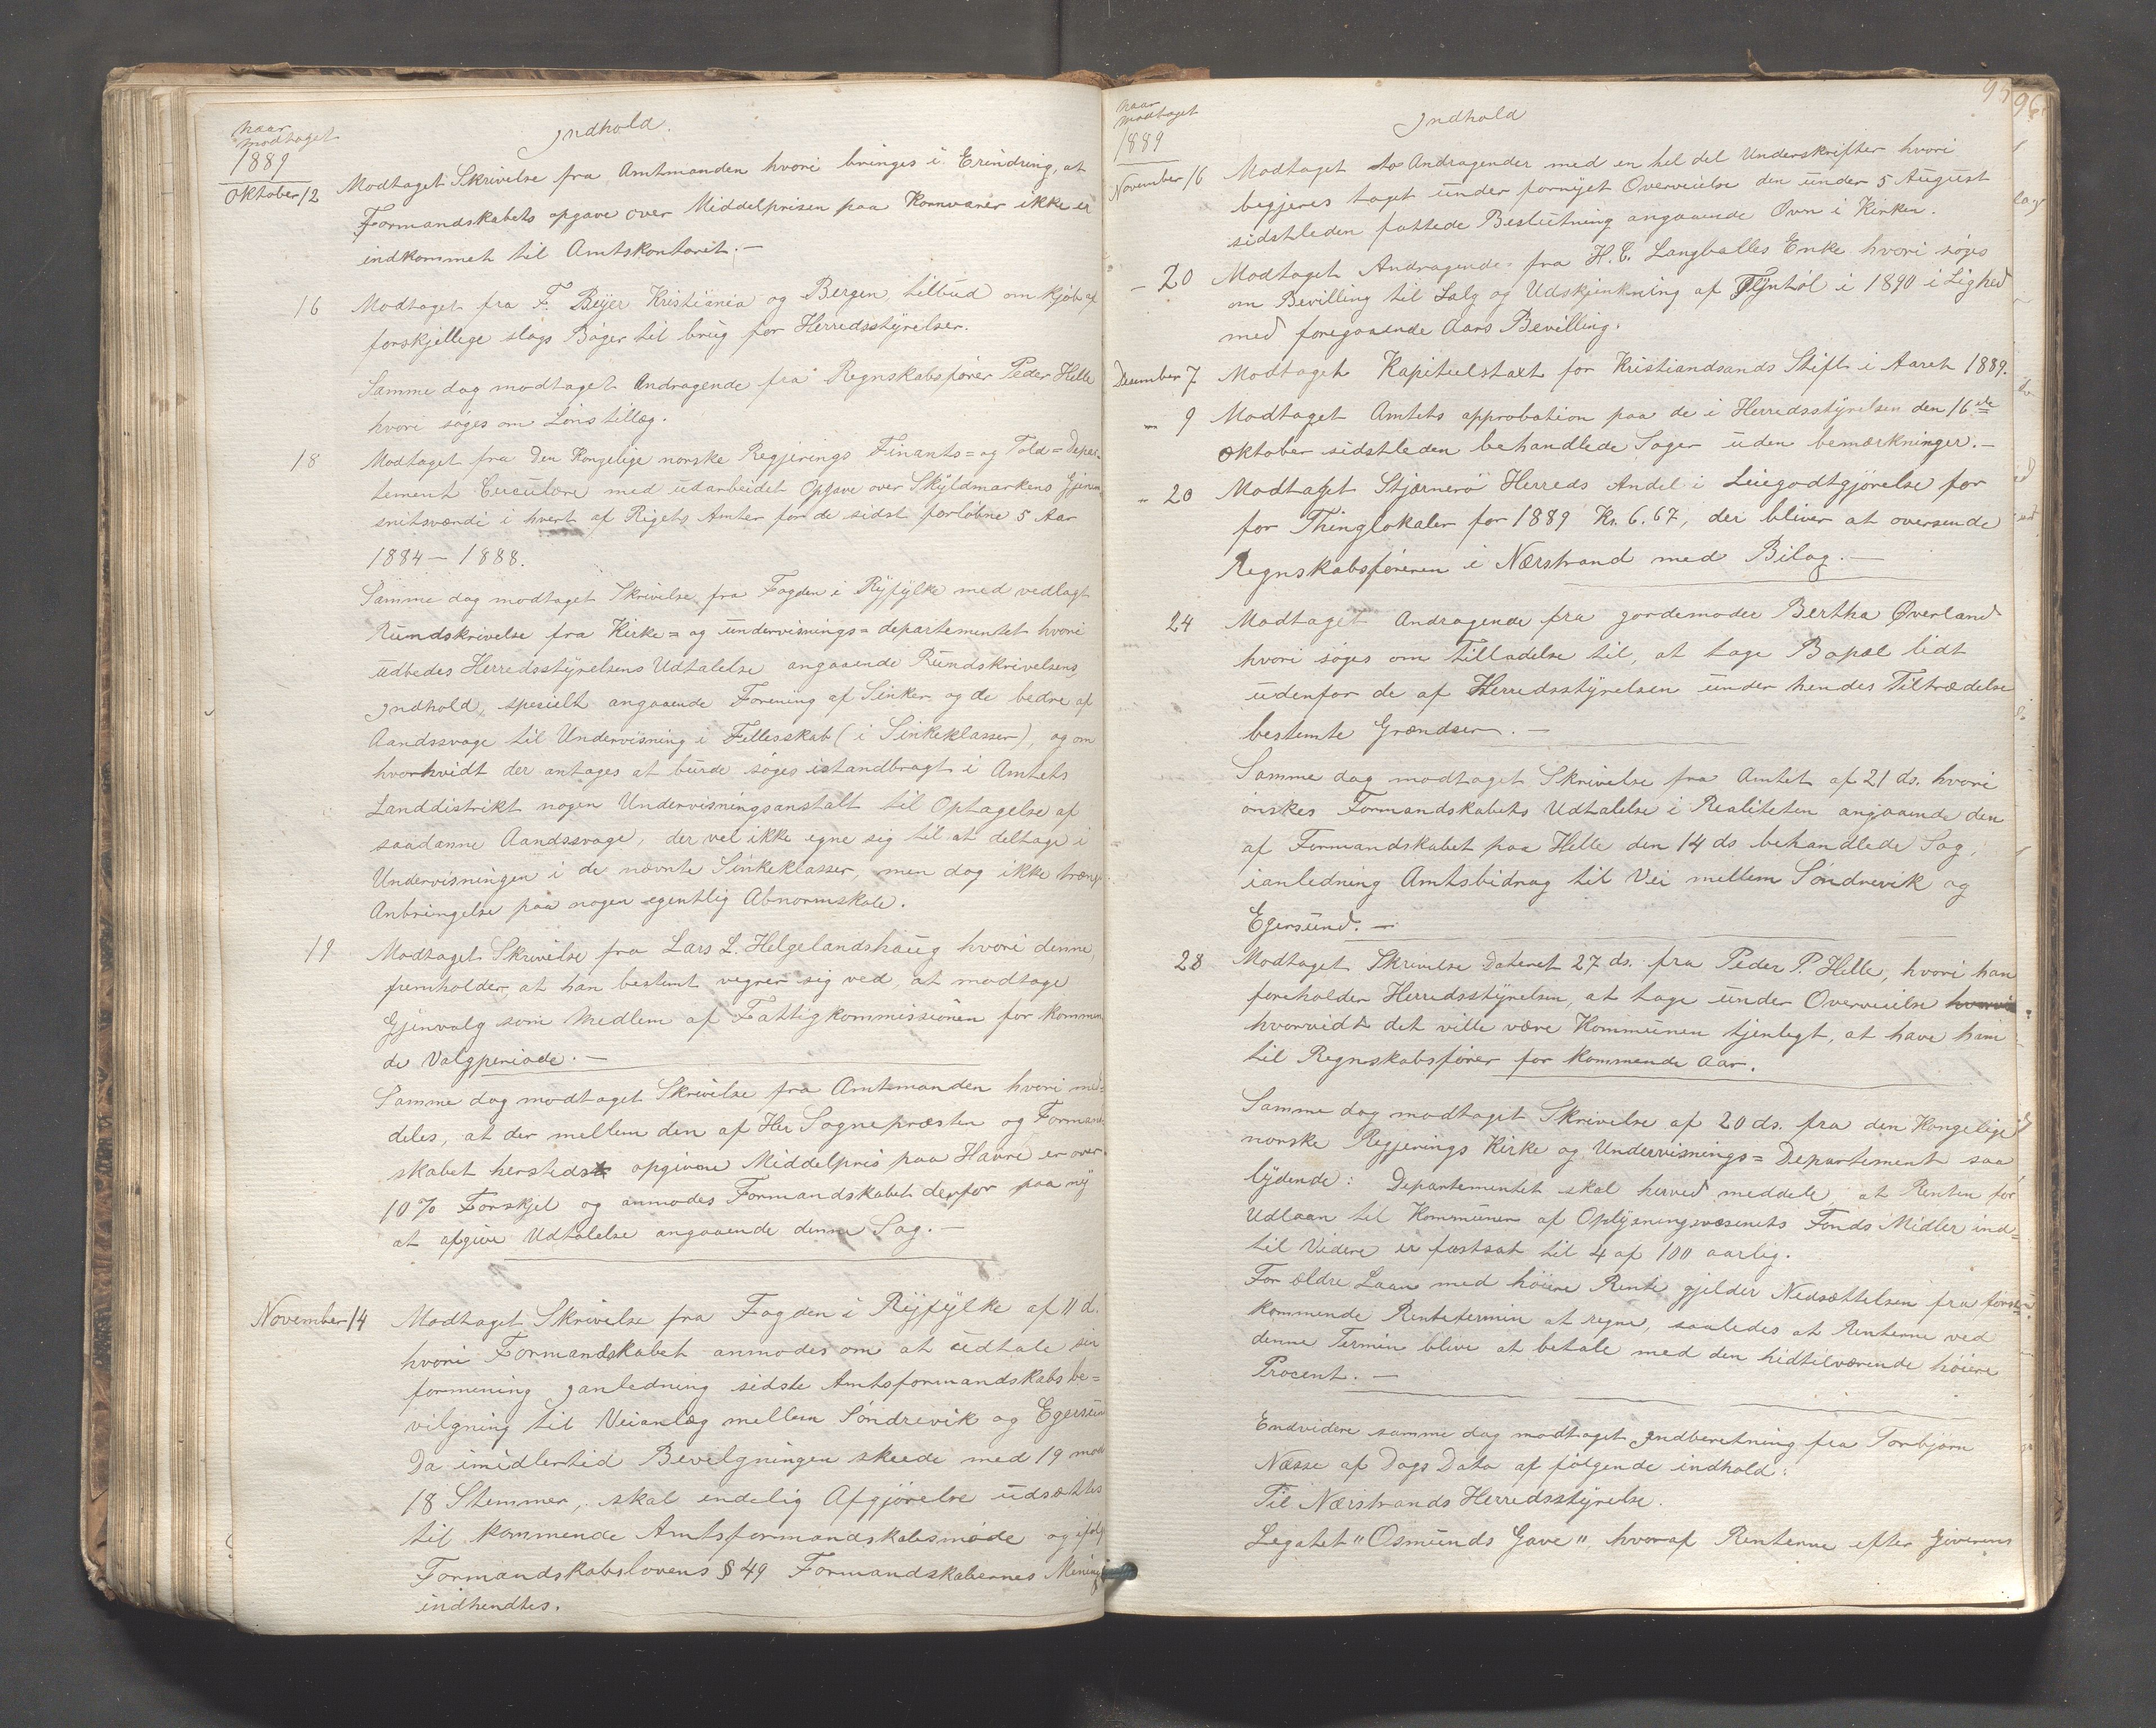 naar
modtaget
1889
Indhold.
Oktober 12 Modtaget Skrivelse fra Amtmanden hvori bringes i Erindring, at
Formandskabets opgave over Middelprisen paa Kornvarer ikke er
indkommet til Amtskontoret.—
16 Modtaget fra F. Beijer Kristiania og Bergen tilbud om kjøb af
forskjellige slags Bøger til brug for Herredsstyrelser.
Samme dag modtaget Andragende fra Regnskabsfører Peder Helle
hvori søges om Lønstillæg.
18 Modtaget fra den Kongelige norske Regjerings Finants= og Told=Depar-
tement Circulære med udarbeidet Opgave over Skyldmarkens Gjenem
snitsværdi i hvert af Rigets Amter for de sidst forløbne 5 Aar
1884 — 1888.
Samme dag modtaget Skrivelse fra Fogden i Ryfylke med vedlagt
Rundskrivelse fra Kirke= og undervisnings=departementet hvori
udbedes Herredsstyrelsens Udtalelse angaaende Rundskrivelsens
Indhold, spesielt angaaende Forening af Sinker og de bedre af
Aandssvage til Undervisning i Fellesskab (i Sinkeklasser), og om
hvorhvidt der antages at burde søges istandbragt i Amtets
Landdistrikt nogen Undervisningsanstalt til Optagelse af
saadanne Aandssvage, der vel ikke egne sig til at deltage i
Undervisningen i de nævnte Sinkeklasser, men dog ikke trænge
Anbringelse paa nogen egentlig Abnormskole.
19 Modtaget Skrivelse fra Lars L. Helgelandshaug hvori denne
fremholder, at han bestemt vegrer sig ved, at modtage
Gjenvalg som Medlem af Fattigkommissionen for kommen
de Valgperiode.—
Samme dag modtaget Skrivelse fra Amtmanden hvori med=
deles, at der mellem den af Her Sognepræsten og Formand
skabet hersteds opgivne Middelpris paa Havre er over
10 % Forskjel og anmodes Formandskabet derfor paa ny
at afgive Udtalelse angaaende denne Sag.—
November 14 Modtaget Skrivelse fra Fogden i Ryfylke af 11 d.
hvori Formandskabet anmodes om at udtale sin
formening ianledning sidste Amtsformandskabs be=
vilgning til Veianlæg mellem Søndrevik og Egersund
Da imidlertid Bevilgningen skeede med 19 mod
18 Stemmer, skal endelig Afgjørelse udsættes
til kommende Amtsformandskabsmøde og ifølg
Formandskabslovens § 49 Formandskabernes Mening
indhendtes.
95 96
naar
modtaget
1889
Indhold
November 16 Modtaget to Andragender med en hel del Underskrifter hvori
begjeres taget under fornyet Overveielse den under 5 August
sidstleden fattede Beslutning angaaende Ovn i Kirken.
— 20 Modtaget Andragende fra H. C. Langballes Enke hvori søges
om Bevilling til Salg og Udskjænkning af Tyntøl i 1890 i Lighed
med foregaaende Aars Bevilling.
December 7 Modtaget Kapitelstaxt for Kristiandsands Stift i Aaret 1889.
— 9 Modtaget Amtets approbation paa de i Herredsstyrelsen den 16de
Oktober sidstleden behandlede Sager uden bemærkninger.—
— 20 Modtaget Stjærnerø Herreds Andel i Leiegodtgjørelse for
for Thinglokaler for 1889 Kr. 6.67, der bliver at oversende
Regnskabsføreren i Nærstrand med Bilag.—
24 Modtaget Andragende fra gordemoder Bertha Øverland
hvori søges om Tilladelse til, at tage Bopæl lidt
udenfor de af Herredsstyrelsen under hendes Tiltrædelse
bestemte Grændser.—
Samme dag modtaget Skrivelse fra Amtet af 21 ds. hvori
ønskes Formandskabets Udtalelse i Realiteten angaaende den
af Formandskabet paa Helle den 14 ds behandlede Sag,
ianledning Amtsbidrag til Vei mellem Søndrevik og
Egersund.—
28 Modtaget Skrivelse Dateret 27 ds. fra Peder P. Helle, hvori han
foreholder Herredsstyrelsen, at tage under Overveielse
hvorvidt det ville være Kommunen tjenlegt, at have ham
til Regnskabsfører for kommende Aar.
Samme dag modtaget Skrivelse af 20 ds. fra den Kongelige
norske Regjerings Kirke og Undervisnings=Departement saa
lydende: Departementet skal herved meddele, at Renten for
Udlaan til Kommuner af Oplysningsvæsenets Fonds Midler ind=
til Videre er fastsat til 4 af 100 aarlig.
For ældre Laan med høiere Rente gjelder Nedsættelsen fra først
kommende Rentetermin at regne, saaledes at Renterne ved
denne Termin blive at betale med den hidtilværende høiere
Procent.—
Endvidere samme dag modtaget Indberetning fra Torbjørn
Næsse af Dags Dato af følgende indhold:
Til Nærstrands Herredsstyrelse.
Legatet "Osmunds Gave" hvoraf Renterne efter Giverens